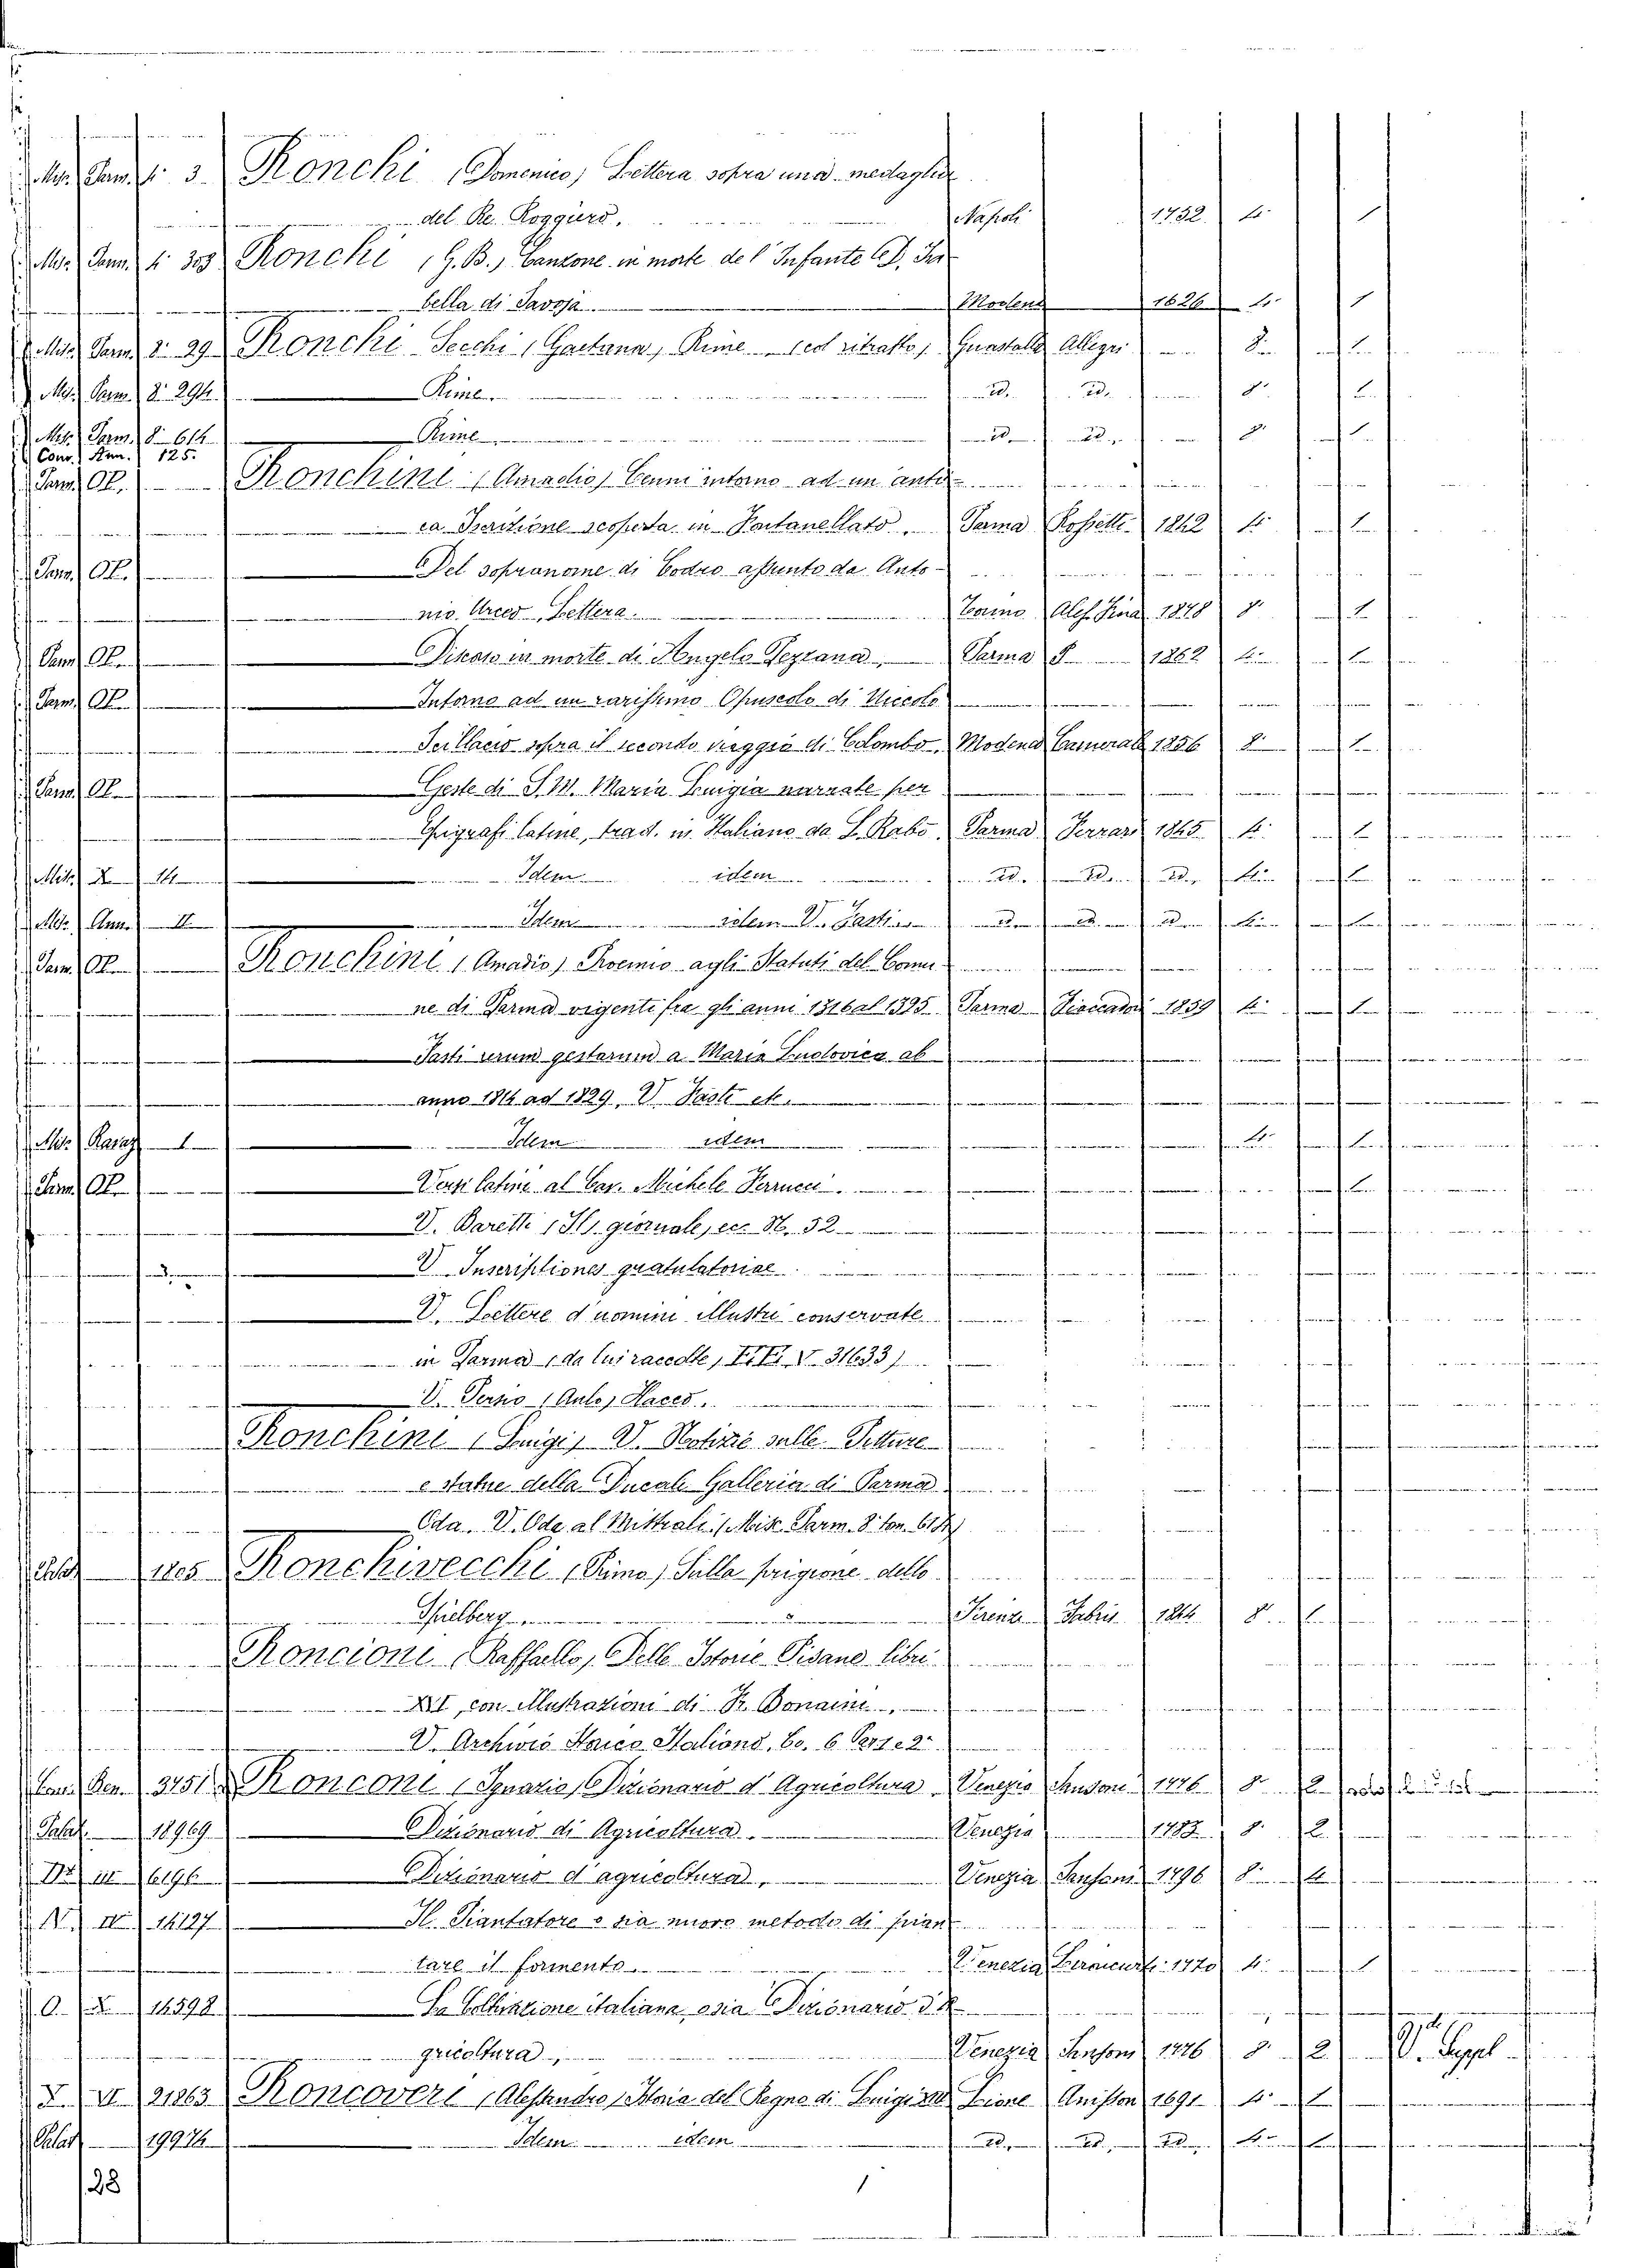 Misc. Parm. 4.° 3. Ronchi (Domenico) Lettera sopra una medaglia
del Re Roggiero. Napoli 1732 4.° 1
Misc. Parm. 4.° 303 Ronchi (G. B.) Canzone in morte de l'Infante D. Isa
bella di Savoja Modena 1626 4.° 1
Misc. Parm. 8.° 29 Ronchi Secchi (Gaetana) Rime (col ritratto) Guastalla Allegri 8.° 1
Misc. Parm. 8.° 294 Rime id. id. 8.° 1
Misc. Parm. 8.° 614 Rime id. id. 8.° 1
Conv. Ann. 125.
Parm. Ob. Ronchini (Amadio) Cenni intorno ad un anti
ca Iscrizione scoperta in Fontanellato. Parma Rossetti 1862 4.° 1
Parm. Ob. Del sopranome di Codro assunto da Anto-
nio Urceo, Lettera. Torino Aless. Fina 1878 8.° 1
Parm. Ob. Discorso in morte di Angelo Pezzana, Parma 1862 4.° 1
Parm. Ob. Intorno ad un rarissimo Opuscolo di Niccolo
Scillacio sopra il secondo viaggio di Colombo. Modena Camerale 1856 8.° 1
Parm. Ob. Geste di S. M. Maria Luigia narrate per
Epigrafi latine, trad. in Italiano da L. Rabò. Parma Ferrari 1845 4.° 1
Misc. 14 Idem idem id. id. id. 4.° 1
Misc. Ann. II Idem idem V. Fasti id. id. id. 1
Parm. Ob. Ronchini (Amadio) Proemio agli Statuti del Comu
ne di Parma vigenti fra gli anni 1316 al 1325 Parma Fiaccadori 1859 4.° 1
Fasti rerum gestarum a Maria Ludovica ab
anno 1814 ad 1829. V. Fasti etc.
Misc. 1 Idem idem 4.° 1
Parm. Ob. Versi latini al Cav. Michele Ferrucci. 1
V. Baretti (Il) giornale, ec. N. 52
V. Inscriptiones gratulatoriae
V. Lettere d'uomini illustri conservate
in Parma (da lui raccolte, V. 31633)
V. Persio (Aulo) Flacco.
Ronchini (Luigi) V. Notizie sulle Pitture
e statue della Ducale Galleria di Parma
Oda. V. Oda al Mistrali (Misc. Parm. 8.° ton. 614)
Palat. Ronchivecchi (Primo) Sulla prigione dello
Spielberg Firenze Fabris 1844 8.° 1
Roncioni (Raffaello) Delle Istorie Pisane libri
XVI, con illustrazioni di F. Bonaini
V. Archivio Storico Italiano, to. 6 Parte 2.°
Conv. Ben. 3451 Ronconi (Ignazio) Dizionario d'Agricoltura Venezia Sansoni 1776 8.° 2
Palat. 18969 Dizionario di Agricoltura. Venezia 1783 8.° 2
III 6196 Dizionario d'agricoltura. Venezia Sansoni 1796 8.° 4
N. IV 14127 Il Piantatore o sia nuovo metodo di pian
tare il formento. Venezia 1770 4.° 1
O. X 14598 La Coltivazione italiana, o sia Dizionario d'A
gricoltura, Venezia Sansoni 1776 8.° 2 V. Suppl.
X VI 21863 Roncoveri (Alessandro) Storia del Regno di Luigi XIII Lione Anisson 1691 4.° 1
Palat. 19974 Idem idem id. id. id. 4.° 1
128